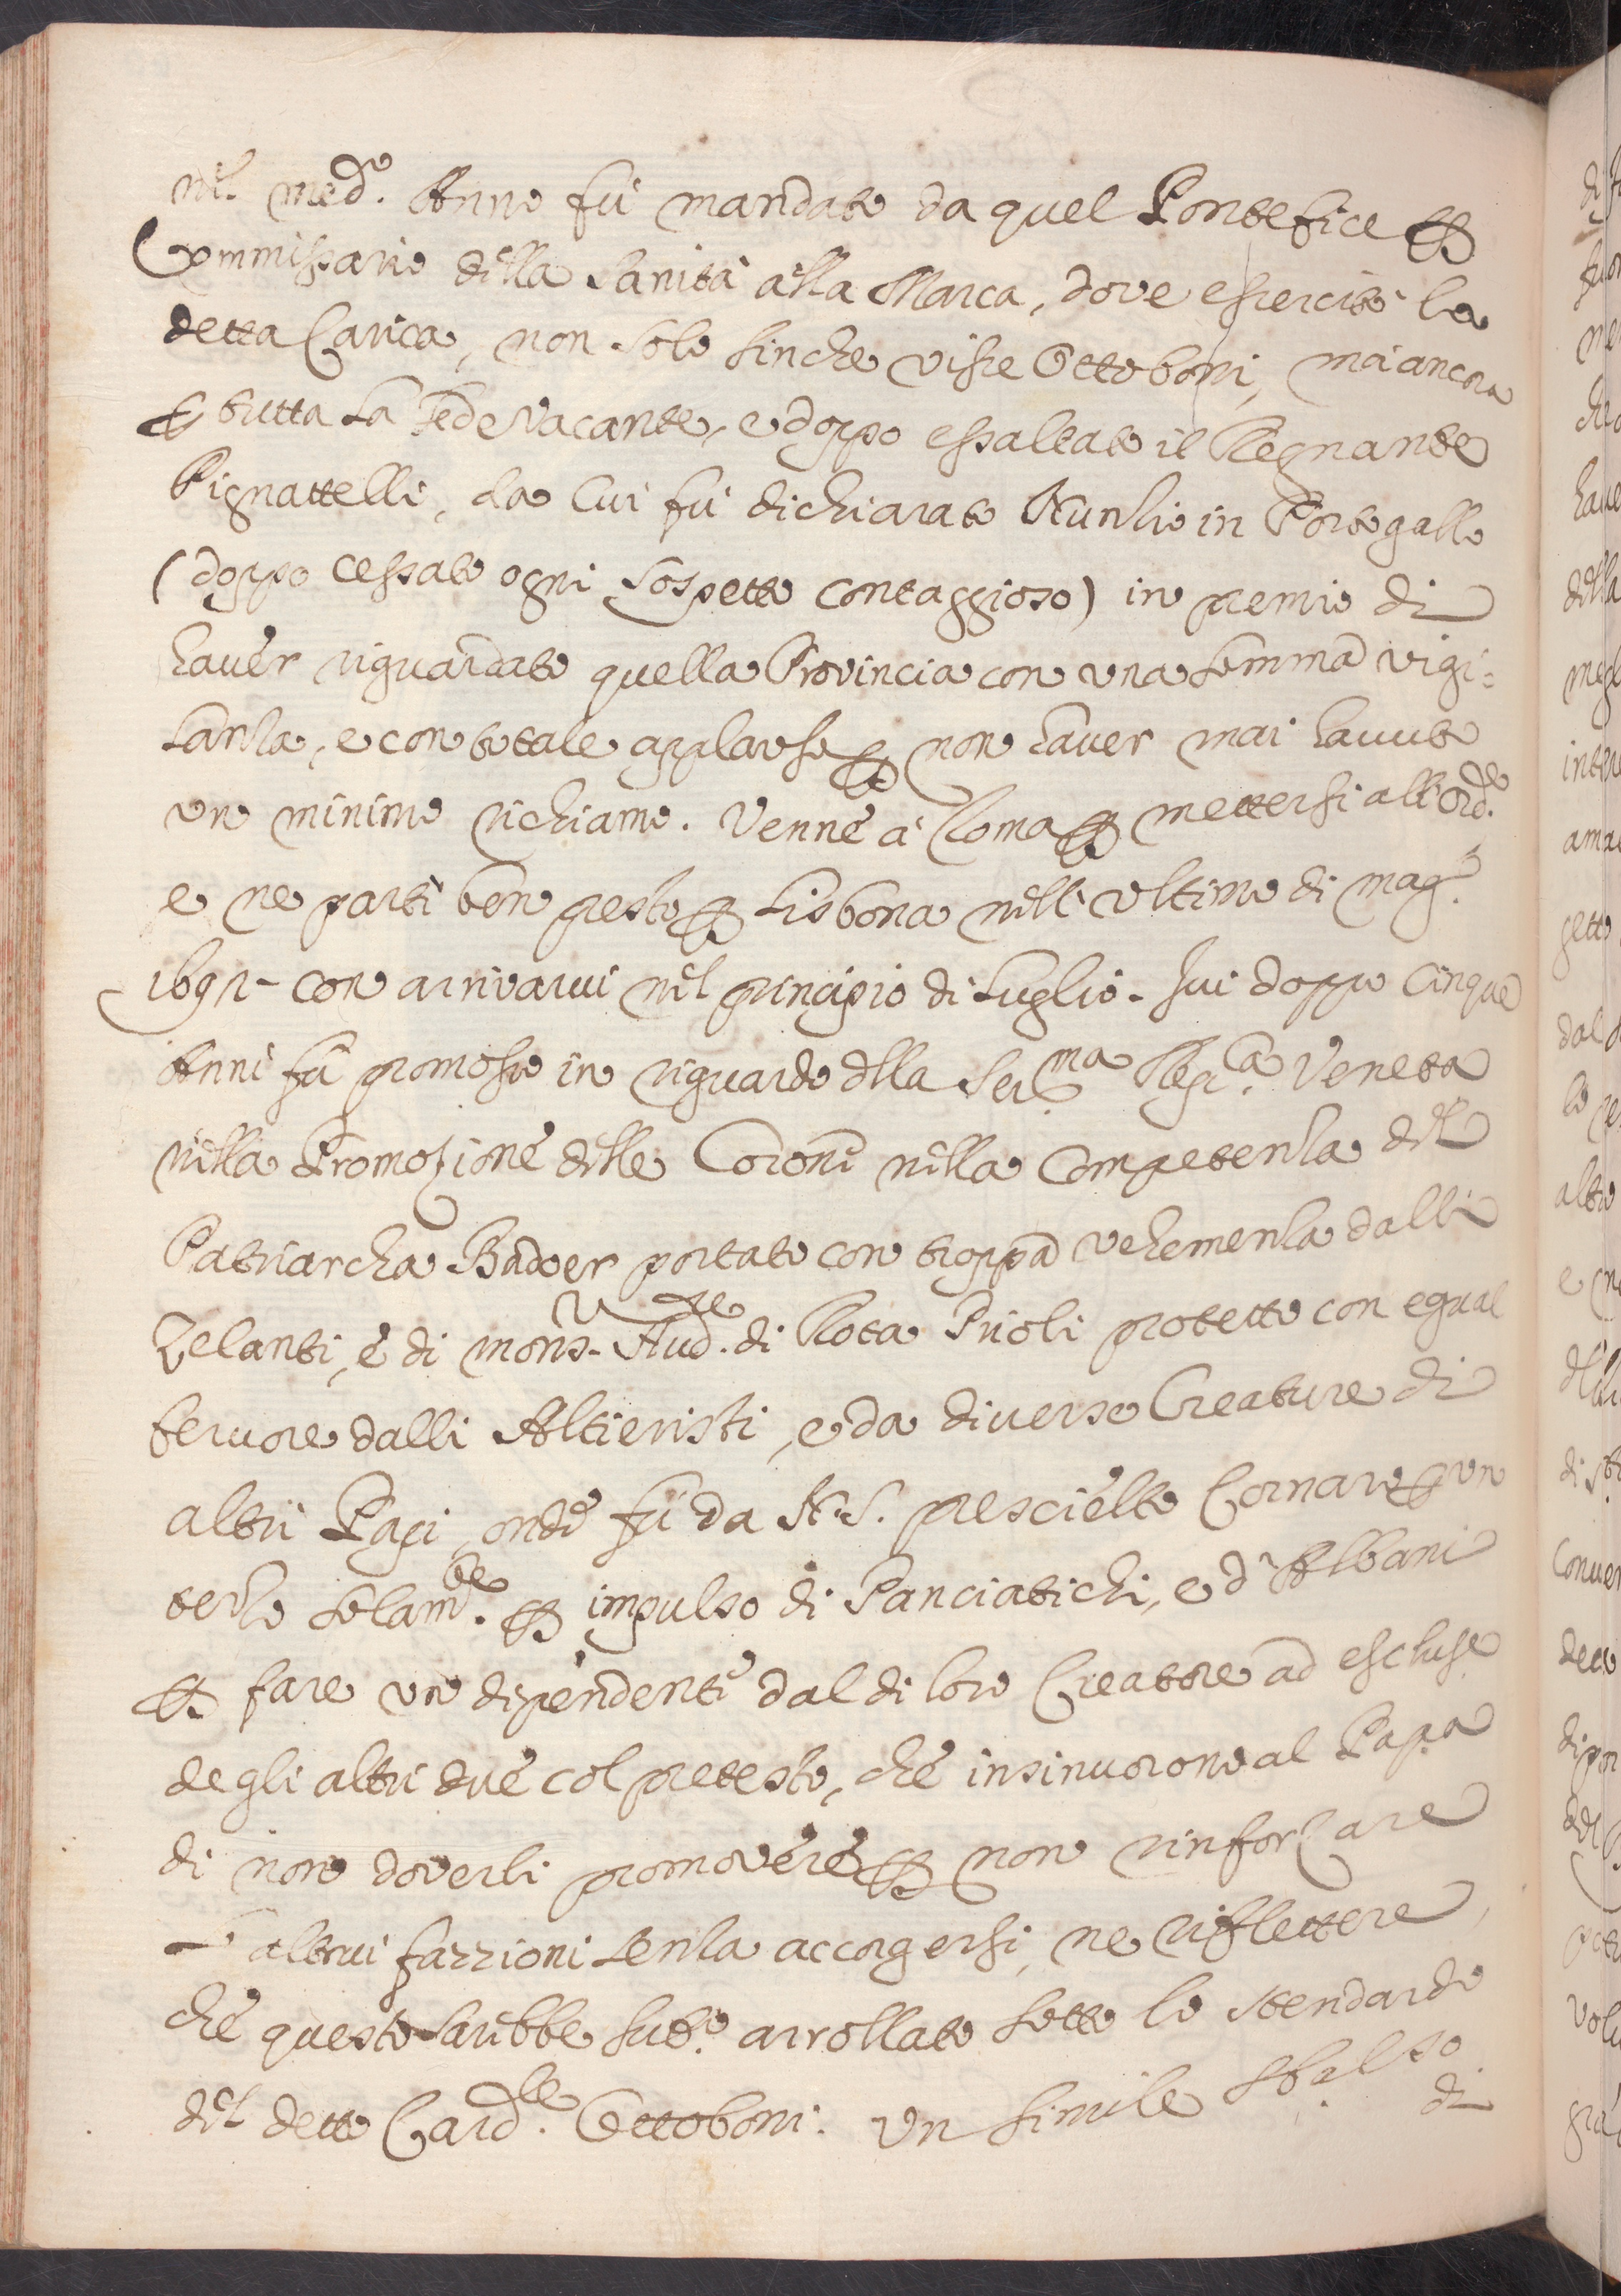 nel med.o Anno fù mandato da quel Pontefice p
Commissario della Sanità alla Marca, dove essercitò la
detta Carica, non solo sinche visse Ottoboni, mà ancora
p tutta la Sede Vacante, e doppo essaltato il Regnante
Pignattelli, da lui fù dichiarato Nunzio in Portogallo
(doppo cessato ogni sospetto contaggioso) in premio di
haver riguardato quella Provincia con una somma vigi:
lanza, e con totale applauso p non haver mai havuto
un minimo richiamo. Venne à Roma p mettersi all'ord.e
e ne partì ben presto p Lisbona nell'ultimo di mag.o
1692 - con arrivarvi nel principio di Luglio. Ivi doppo cinque
Anni fù promosso in riguardo della Ser.ma Rep.ca Veneta
nella Promozione delle Corone nella competenza del
Patriarcha Badoer portato con troppa vehemenza dalli
Zelanti, e di mons.r Aud.re di Rota Prioli protetto con egual
fervore dalli Altieristi, e da diverse Creature di
altri Papi, onde fù da N.S. prescielto Cornaro p un
terzo solam.te p impulso di Panciatichi, e d'Albani
p fare un dipendente dal di loro Creatore ad escluse
degli altri due col pretesto, che insinuorono al Papa
di non doverli promovere p non rinforzare
l'altrui fazzioni senza accorgersi, ne riflettere,
che questo sarebbe sub.o arrollato sotto lo stendardo
del detto Card.le Ottoboni. Un simile sbalso
di